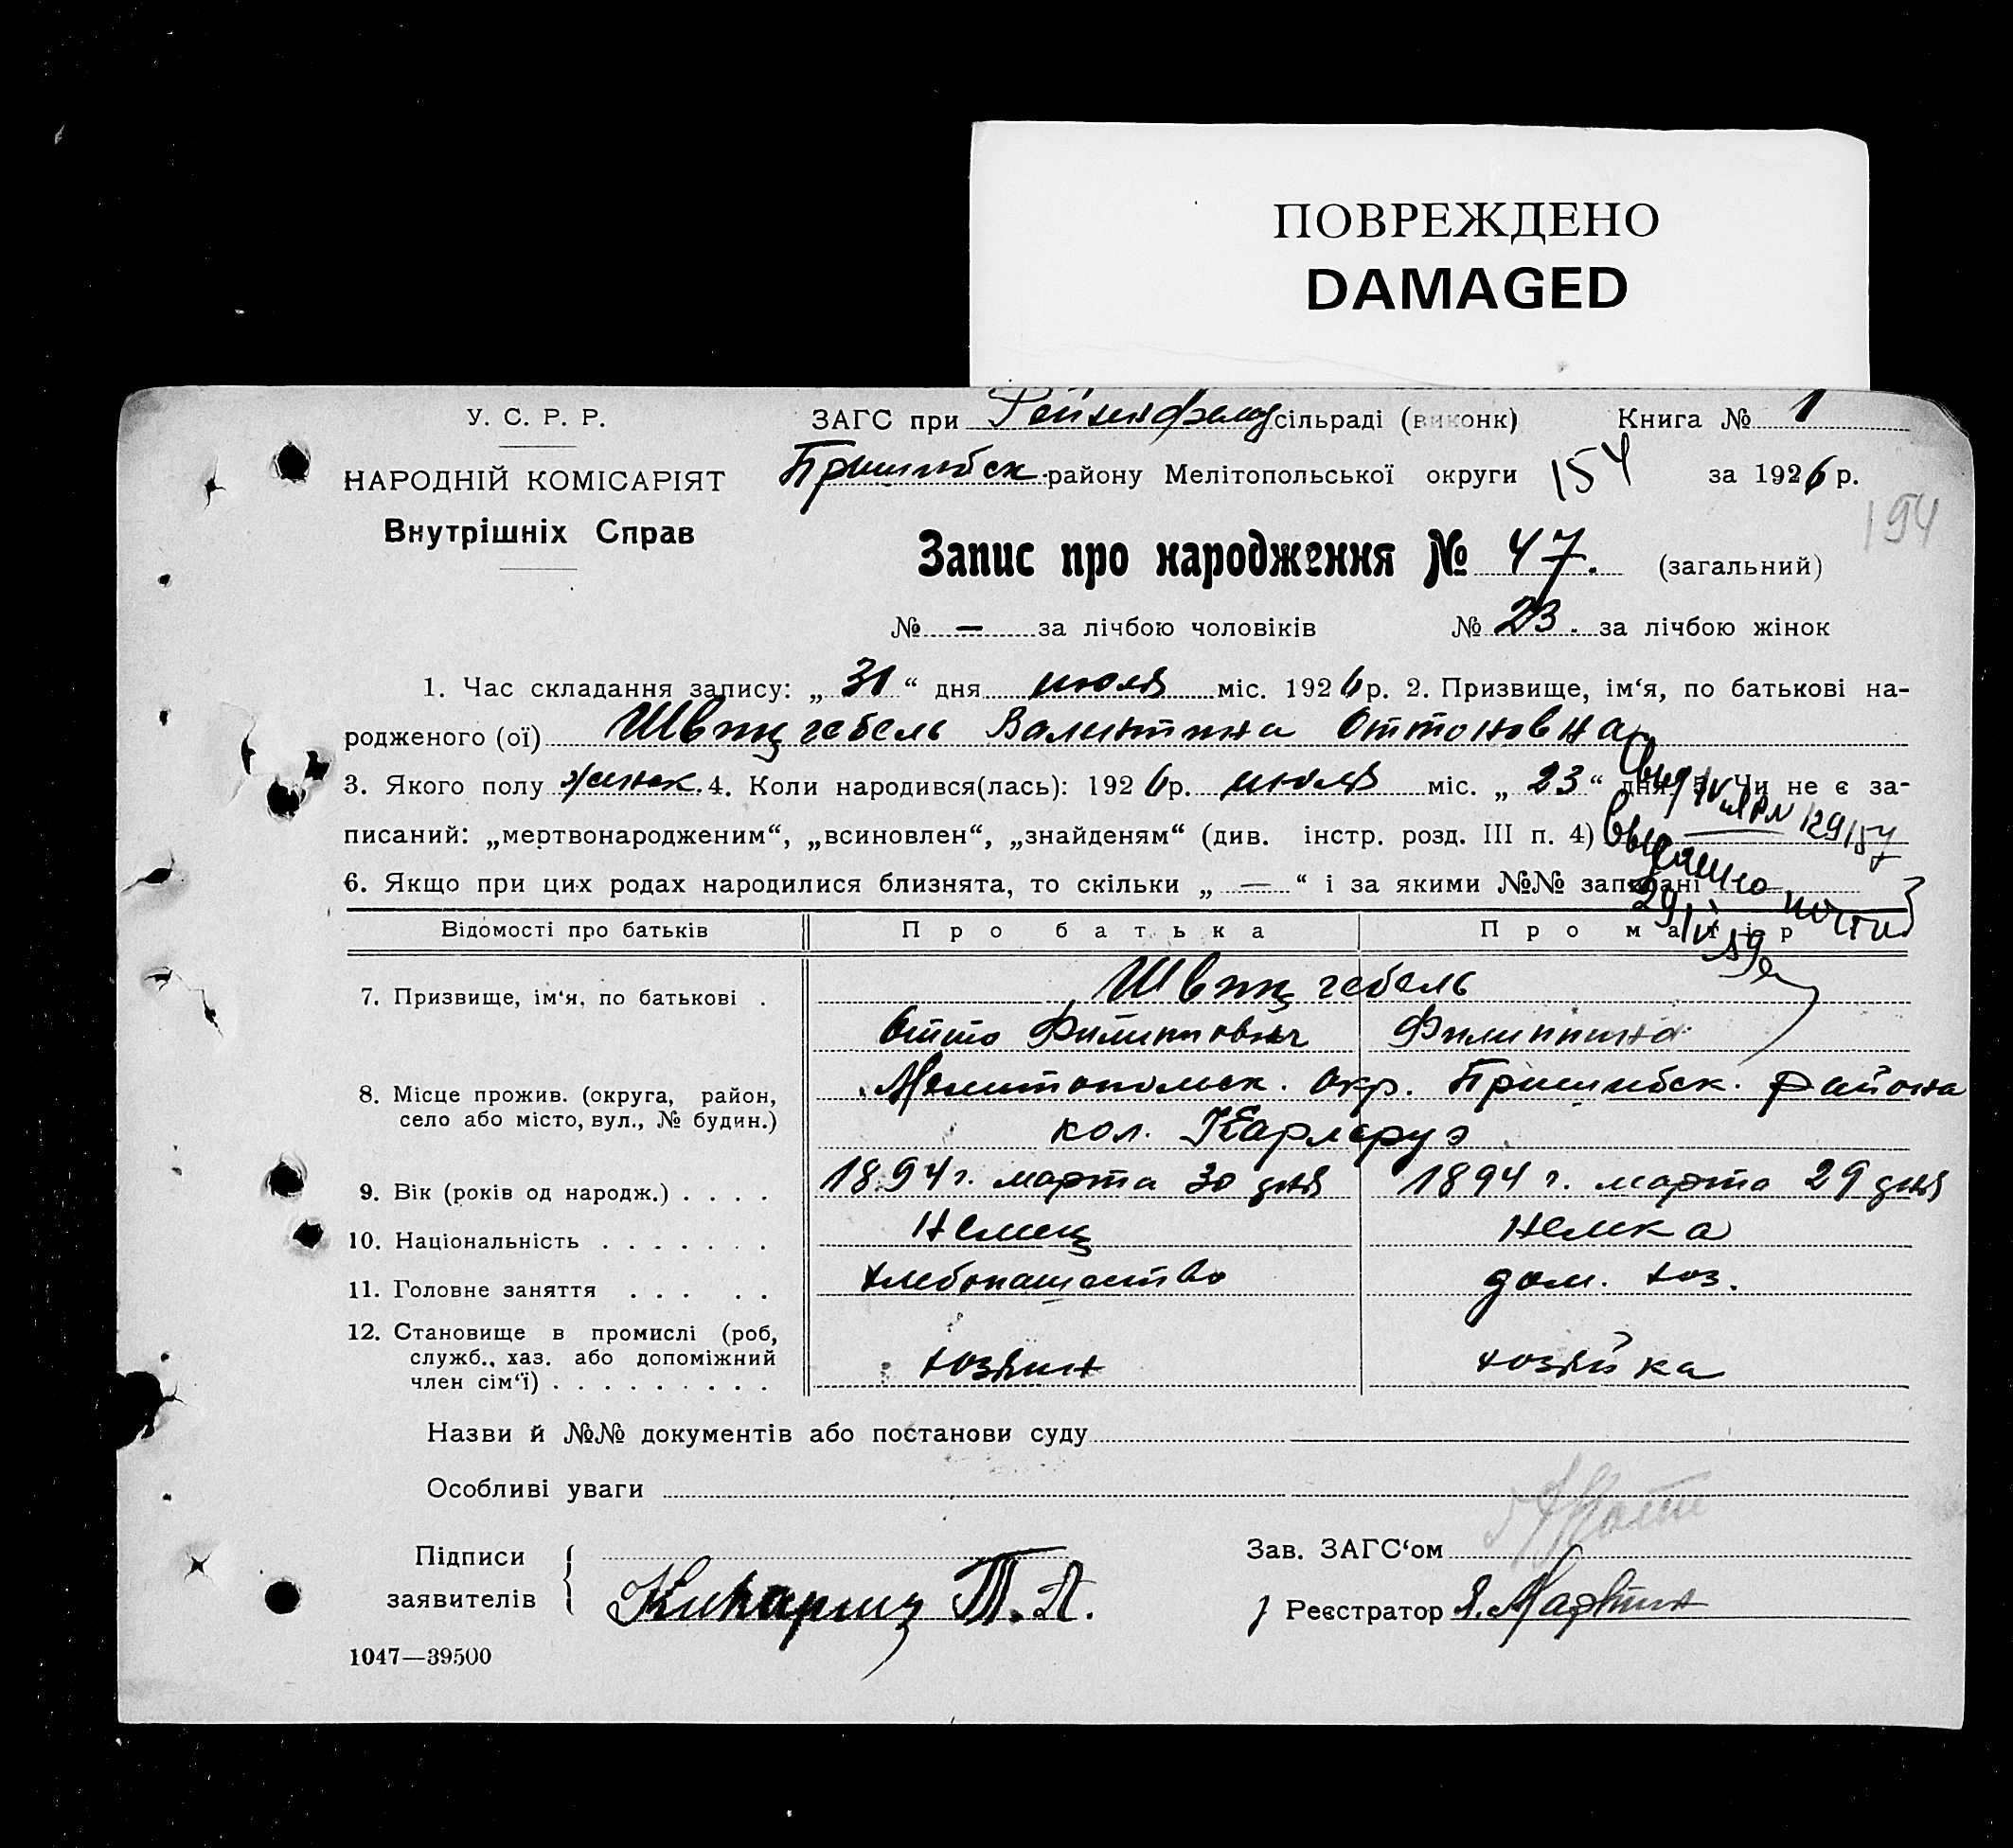 ПОВРЕЖДЕНО
DAMAGED
У. С. Р. Р.
НАРОДНІЙ КОМІСАРІЯТ
Внутрішніх Справ
ЗАГС при Рейхенфельд сільраді (виконк) Книга № 1
Пришибск. району Мелітопольської округи 154 за 1926 р.
194
Запис про народження № 47. (загальний)
№ — за лічбою чоловіків № 23. за лічбою жінок
1. Час складання запису: „31“ дня июля міс. 1926 р. 2. Призвище, ім‘я, по батькові на-
родженого (ої) Швицгебель Валинтина Оттоновна
3. Якого полу женск. 4. Коли народився(лась): 1926 р. июля міс. „23“ дня 5. Чи не є за-
писаний: „мертвонародженим“, „всиновлен“, „знайденям“ (див. інстр. розд. III п. 4)
6. Якщо при цих родах народилися близнята, то скільки „—“ і за якими №№ записані
Выслано почтой
Відомості про батьків Про батька Про матір
7. Призвище, ім‘я, по батькові . Швицгебель
Отто Филиппович Филиппина
8. Місце прожив. (округа, район, село або місто, вул., № будин.) Мелитопольск. Окр. Пришибск. района
кол. Карлсруэ
9. Вік (років од народж.) . . . . 1894 г. марта 30 дня 1894 г. марта 29 дня
10. Національність . . . . . . . немец немка
11. Головне заняття . . . . . хлебопашество дом. хоз.
12. Становище в промислі (роб,
служб., хаз. або допоміжний
член сім‘ї) . . . . . . . . . хозяин хозяйка
Назви й №№ документів або постанови суду
Особливі уваги
Підписи
заявителів
Зав. ЗАГС‘ом
Реєстратор Я. Мартин
1047—39500